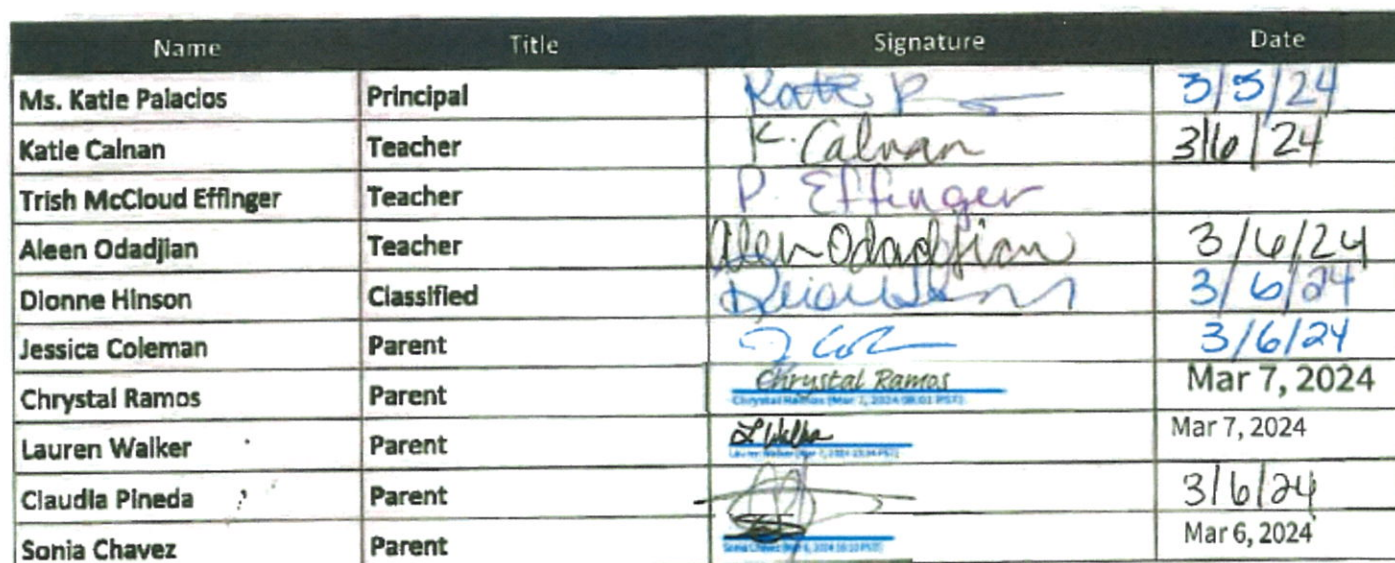 Name Title Signature Date
Ms. Katie Palacios Principal Kate P 3/5/24
Katie Calnan Teacher K. Calnan 3/6/24
Trish McCloud Effinger Teacher P. Effinger
Aleen Odadjian Teacher Aleen Odadjian 3/6/24
Dionne Hinson Classified 3/6/24
Jessica Coleman Parent 3/6/24
Chrystal Ramos Parent Chrystal Ramos Mar 7, 2024
Chrystal Ramos (Mar 7, 2024 08:01 PST)
Lauren Walker Parent L Walker Mar 7, 2024
Lauren Walker (Mar 7, 2024 PST)
Claudia Pineda Parent 3/6/24
Sonia Chavez Parent Mar 6, 2024
Sonia Chavez (Mar 6, 2024 PST)